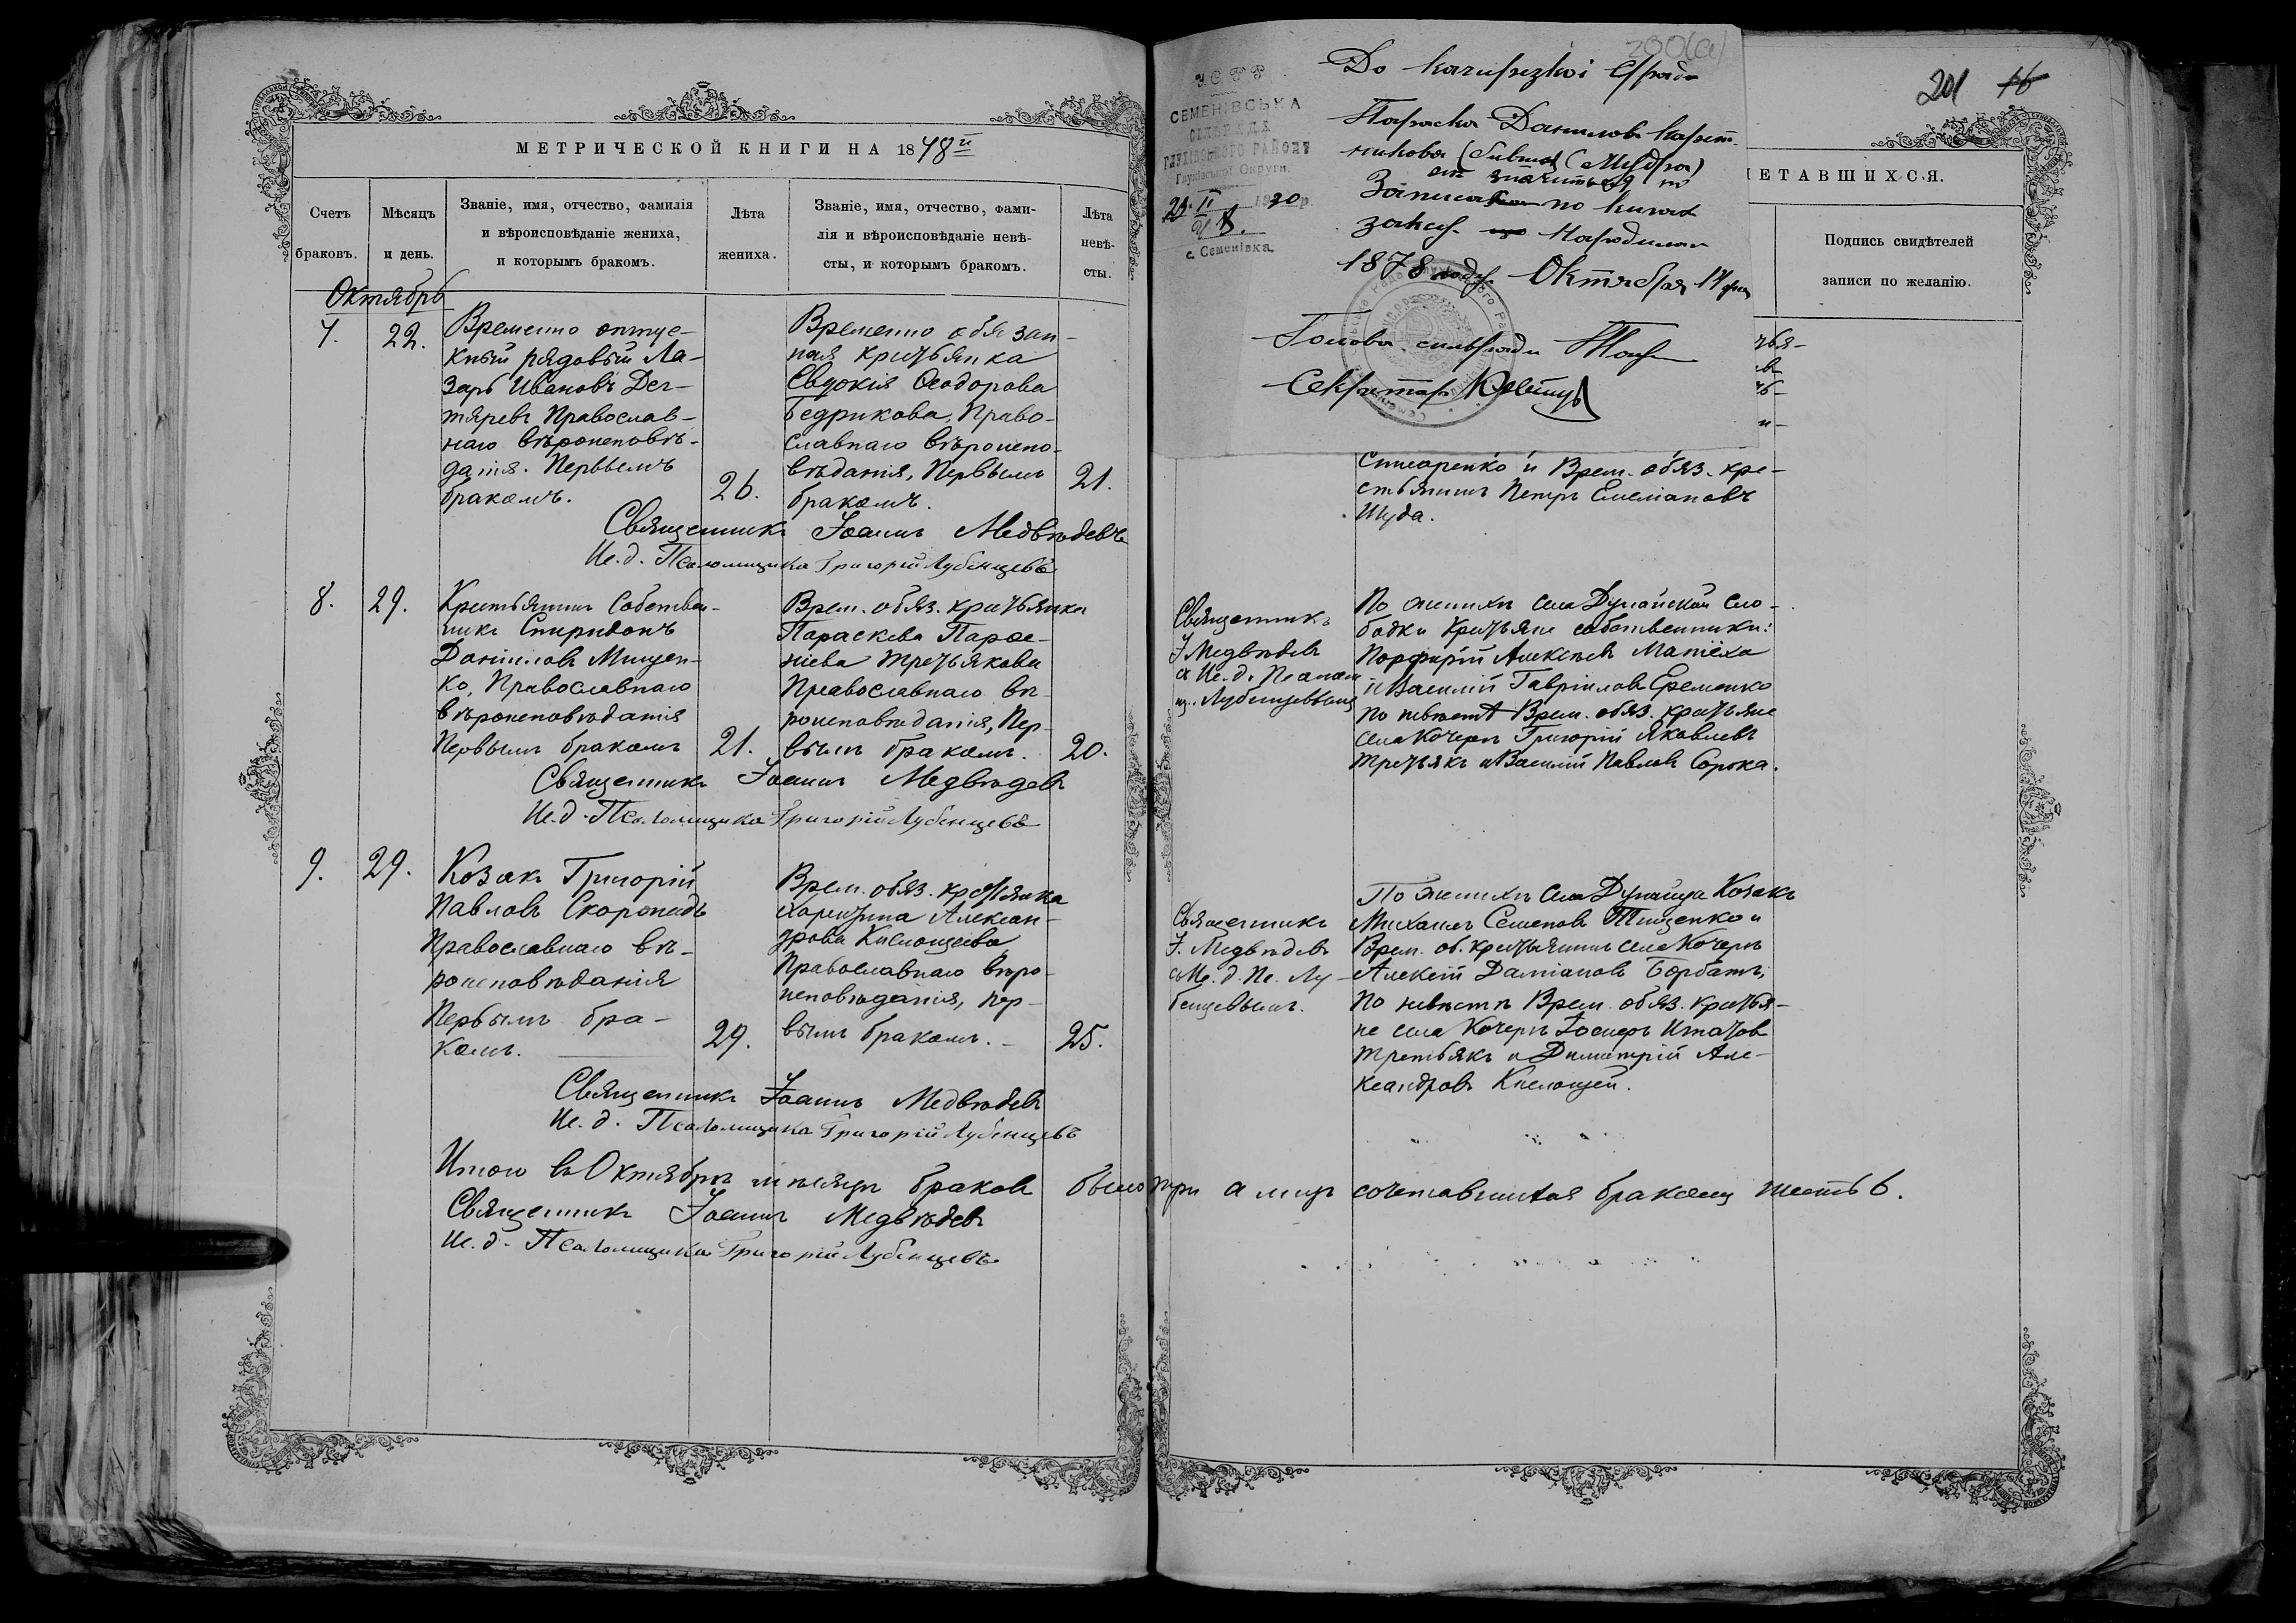 МЕТРИЧЕСКОЙ КНИГИ НА 1878й
Счетъ
браковъ.
Мѣсяцъ
и день.
Званіе, имя, отчество, фамилія
и вѣроисповѣданіе жениха,
и которымъ бракомъ.
Лѣта
жениха.
Званіе, имя, отчество, фами-
лія и вѣроисповѣданіе невѣ-
сты, и которымъ бракомъ.
Лѣта
невѣ-
сты.
Октябрь
7.
22.
Временно отпус-
кный рядовый Ла-
зарь Ивановъ Дег-
тяревъ Православ-
наго вѣроисповѣ-
данія. Первымъ
бракомъ.
26.
Временно обязан-
ная крестьянка
Евдокія Ѳеодорова
Бедрикова, Право-
славнаго вѣроиспо-
вѣданія, Первымъ
бракомъ.
21.
Священникъ Іоаннъ Медвѣдевъ
Ис.д. Псаломщика Григорій Лубенцевъ
8.
29.
Крестьянинъ Собствен-
никъ Спиридонъ
Даніиловъ Мищен-
ко, Православнаго
вѣроисповѣданія
Первымъ бракомъ
21.
Врем. обяз. крестьянка
Параскева Парѳе-
ніева Третьякова
Православнаго вѣ-
роисповѣданія, Пер-
вымъ бракомъ.
20.
Священникъ Іоаннъ Медвѣдевъ
Ис.д. Псаломщика Григорій Лубенцевъ
9.
29.
Козакъ Григорій
Павловъ Скоропадъ
Православнаго вѣ-
роисповѣданія
Первымъ бра-
комъ.
29.
Врем. обяз. крестьянка
Харитина Алексан-
дрова
Православнаго вѣро-
исповѣданія, пер-
вымъ бракомъ.
25.
Священникъ Іоаннъ Медвѣдевъ
Ис.д. Псаломщика Григорій Лубенцевъ
Итого въ Октябрѣ мѣсяцѣ браковъ было три а лицъ сочетавшихся бракомъ шесть 6.
Священникъ Іоаннъ Медвѣдевъ
Ис.д. Псаломщика Григорій Лубенцевъ
200(а)
УСРР
СЕМЕНІВСЬКА
СІЛЬРАДА
ГЛУХІВСЬКОГО РАЙОНУ
Глухівської Округи.
с. Семенівка.
До
Параска Данилова
значиться
Записа по книгах
1878 году Октября 14 дня
Голова сильради
Секретарь
201 16
ЧЕТАВШИХСЯ.
Подпись свидѣтелей
записи по желанію.
и Врем. обяз. кре-
стьянинъ Петръ Емеліановъ
Шуда.
Священникъ
І. Медвѣдевъ
съ Ис.д. Псалом
щ. Лубенцевымъ
По женихѣ села Дунайской Сло-
бодки Крестьяне собственники:
Порфирій Алексѣевъ Матёха
и Василій Гавріиловъ Еременко
по невѣстѣ Врем. обяз. крестьяне
села Кочергъ Григорій Яковлевъ
Третьякъ и Василій Павловъ Сорока.
Священникъ
І. Медвѣдевъ
съ Ис.д. Пс. Лу-
бенцевымъ.
По женихѣ села Дунайца Козакъ
Михаилъ Семеновъ Тищенко и
Врем. об. крестьянинъ села Кочергъ
Алексѣй Даміановъ Борбатъ,
по невѣстѣ Врем. обяз. крестья-
не села Кочергъ Іосифъ Игнатовъ
Третьякъ и Димитрій Але-
ксандровъ